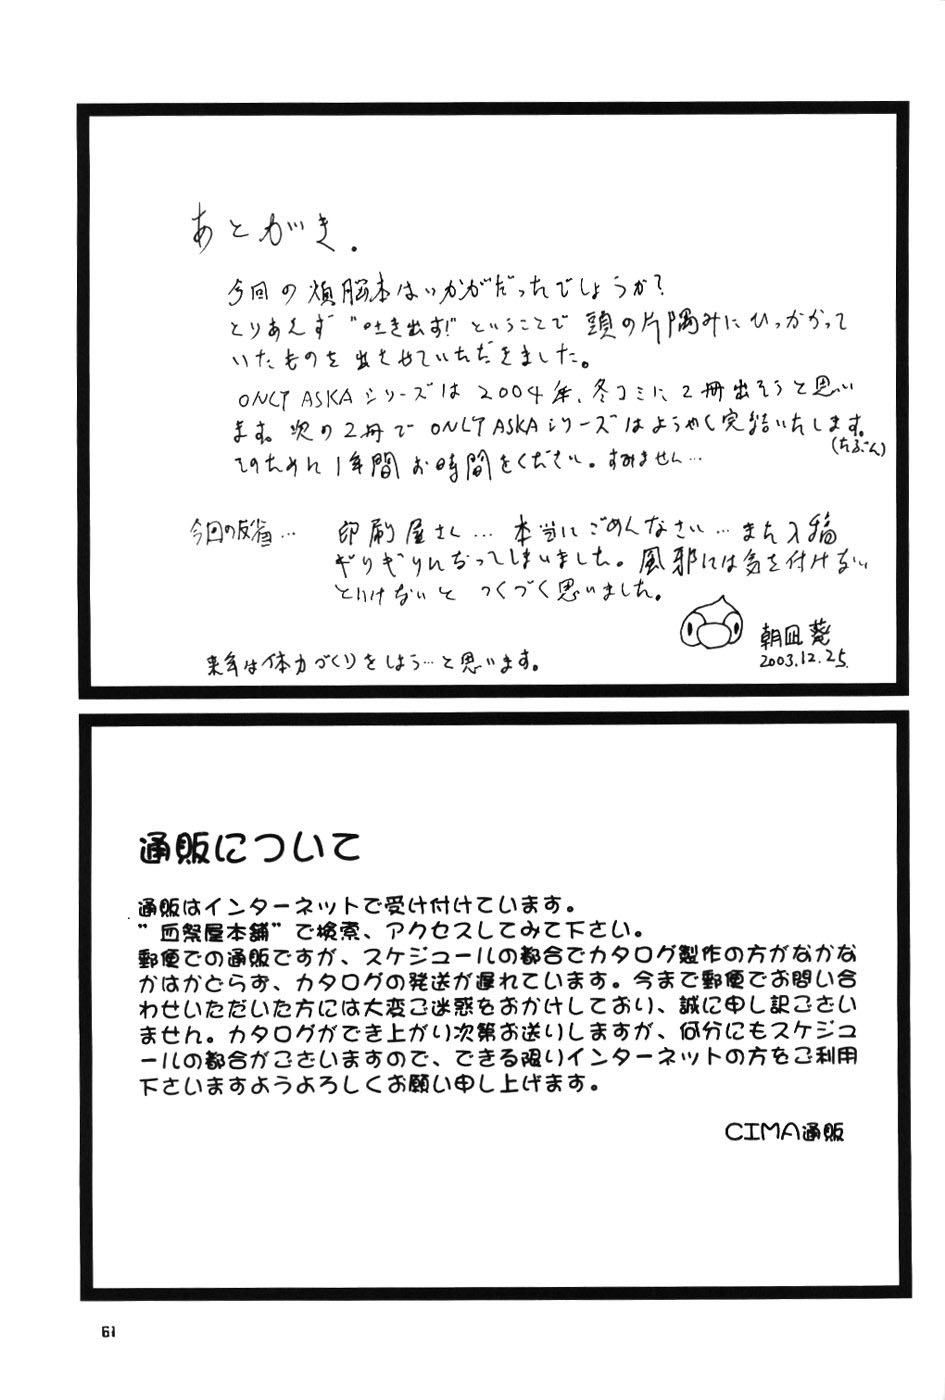 あとがき.
今回の煩悩本はいかがだったでしょうか?
とりあえず"吐き出す!"ということで 頭の片隅みにひっかかって
いたものを 出させていただきました。
ONLY ASKAシリーズは2004年、冬コミに2冊出そうと思い
ます。次の2冊でONLY ASKAシリーズはようやく完結いたします。
(たぶん)
そのために1年間お時間をください。すみません…
今回の反省… 印刷屋さん… 本当にごめんなさい… また入稿
ぎりぎりになってしまいました。風邪には気を付けない
といけないと つくづく思いました。
朝凪 葵
2003.12.25.
来年は体力づくりをしよう…と思います。
通販について
通販はインターネットで受け付けています。
"血祭屋本舗"で検索、アクセスしてみて下さい。
郵便での通販ですが、スケジュールの都合でカタログ製作の方がなかな
かはかどらず、カタログの発送が遅れています。今まで郵便でお問い合
わせいただいた方には大変ご迷惑をおかけしており、誠に申し訳ござい
ません。カタログができ上がり次第お送りしますが、何分にもスケジュ
ールの都合がございますので、できる限りインターネットの方をご利用
下さいますようよろしくお願い申し上げます。
CIMA通販
61